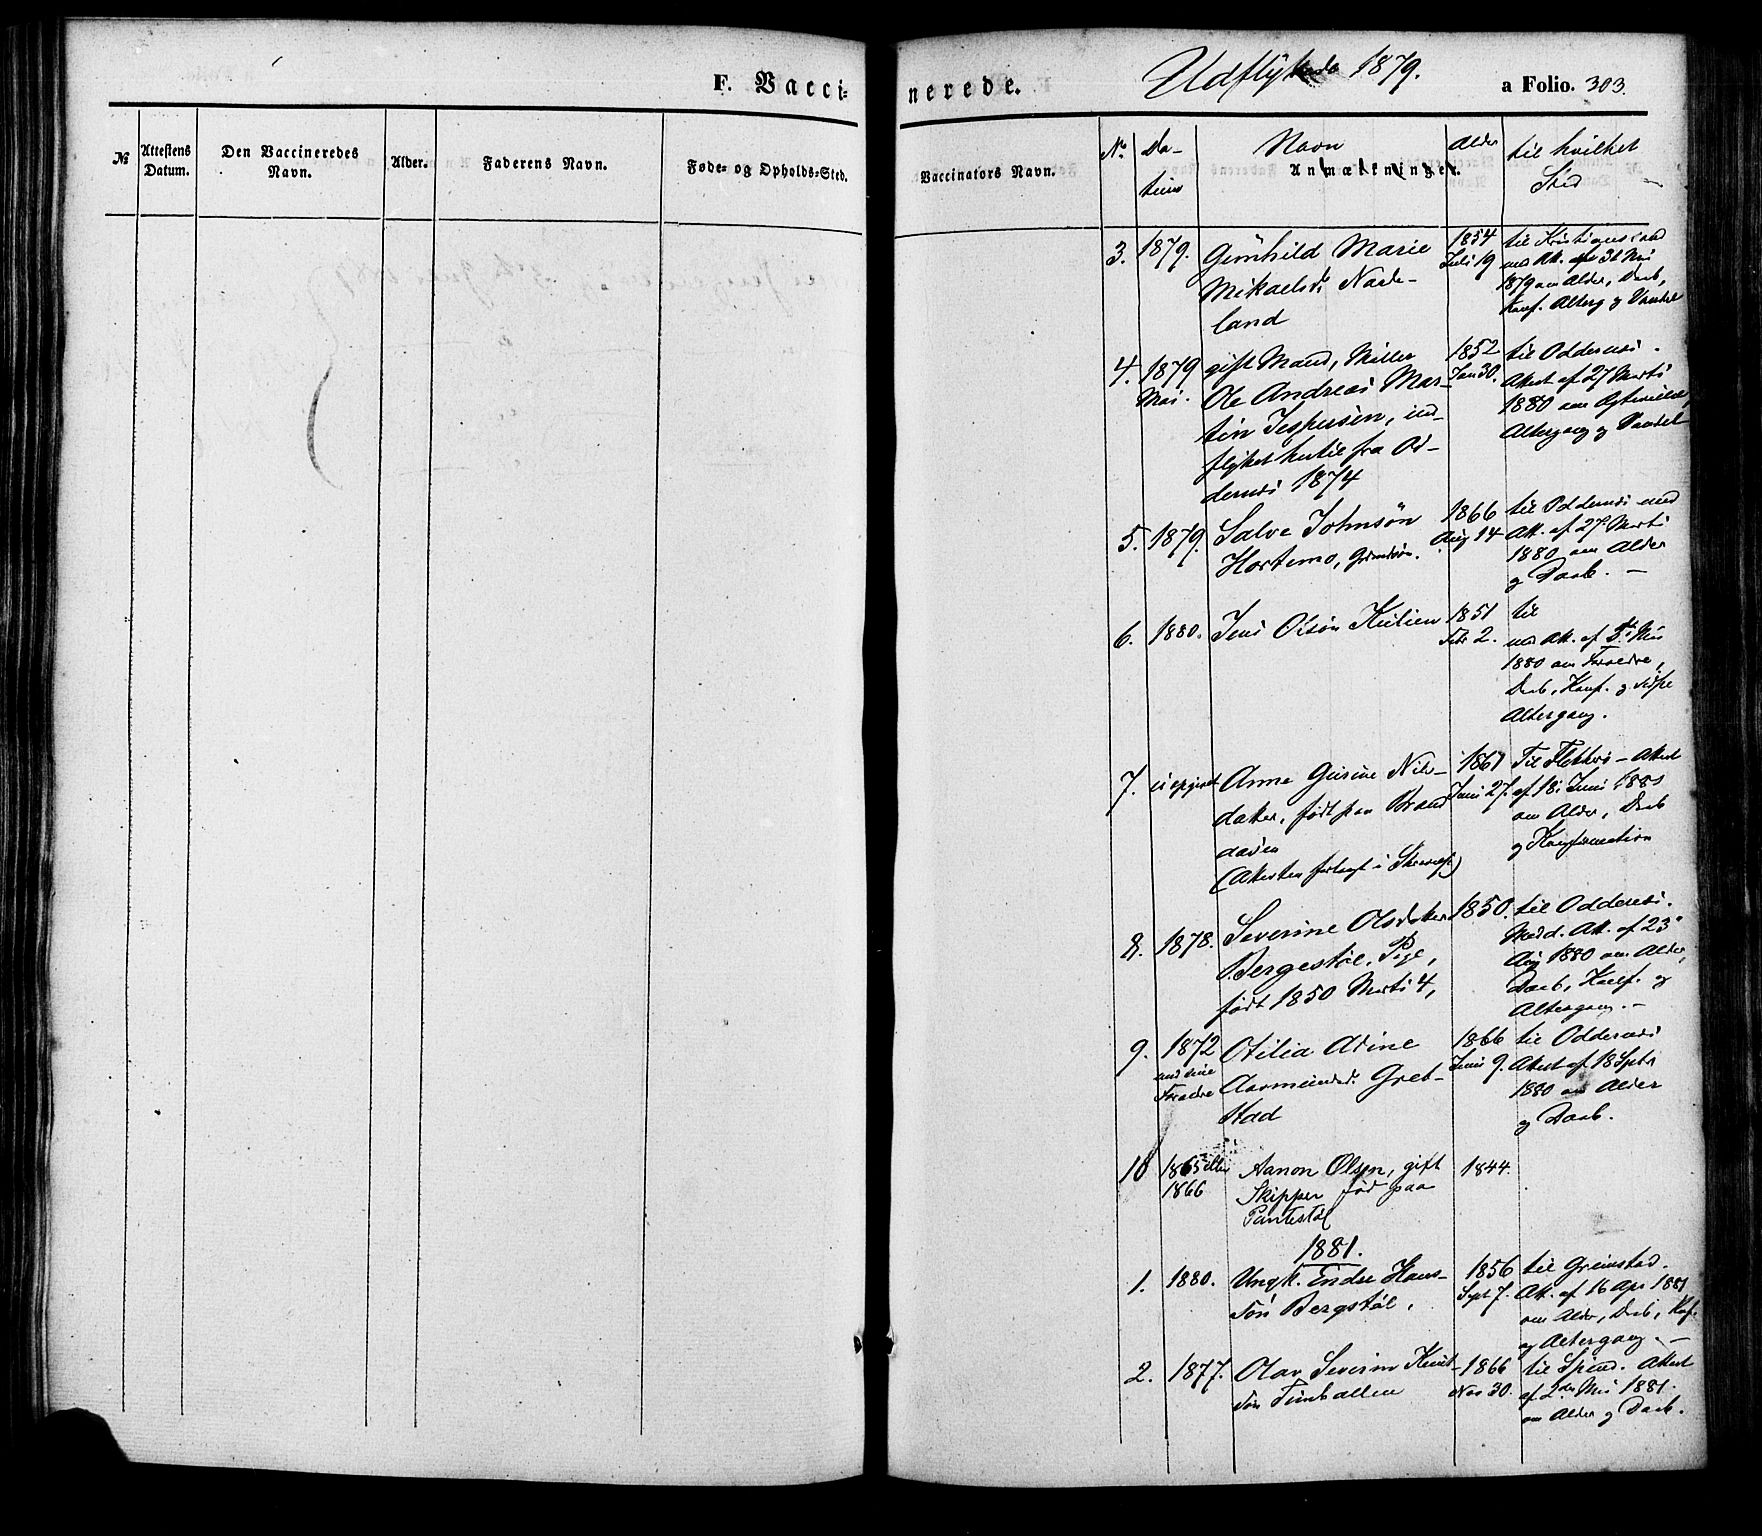 F. Vacci-
nerede.
Udflyttede 1879.
a Folio. 303.
№
Attestens Datum.
Den Vaccineredes Navn.
Alder.
Faderens Navn.
Føde- og Opholds-Sted.
Vaccinators Navn.
Anmærkninger.
No.
Da-
tum
Navn
Alder
til hvilket
Sted
3. 1879. Gunhild Marie
Mikaelsd. Node-
land
1854
Juli 19
til Kristianssand
med Att. af 31 Mai
1879 om Alder, Daab,
Konf. Alterg. og Vandel
4. 1879
Mai.
gift Mand, Møller
Ole Andreas Mar-
tin Jespersen, ind-
flyttet hertil fra Od-
dernes 1874
1852
Jan 30.
til Oddernes.
Attest af 27 Marts
1880 om
Altergang og Vandel
5. 1879. Salve Johnsøn
Hortemo,
1866
Aug 14
til Oddernes med
Att. af 27 Marts
1880 om Alder
og Daab. —
6. 1880. Jens Olsøn Kulien
1851
Febr 2.
til
med Att. af 5te Mai
1880 om Forældre,
Daab, Konf. og sidste
Altergang.
7. ei opgivet Anne Gurine Nils-
datter, født paa Brand
aasen
(Attesten forlagt i
1861
Juni 27.
Til Flekkerø — Attest
af 18 Juni 1881
om Alder, Daab
og Konfirmation
8. 1878. Severine Olsdatter
Bergestøl, Pige,
født 1850 Marts 4,
1850.
til Oddernes.
Medd. Att. af 23
Aug 1880 om Alder,
Daab, Konf. og
Altergang. —
9. 1872
med sine
Forældre
Otilia Adine
Aamundsd. Greb-
stad
1866
Juni 9.
til Oddernes
Attest af 18 Septr
1880 om Alder
og Daab.
10 1865 eller
1866
Aanon Olsen, gift
Skipper fød paa
Pantestøl
1844.
1881.
1. 1880. Ungk. Endre Hans-
søn Bergstøl,
1856
Sept 7.
til Grimstad.
Att. af 16 Apr 1881
om Alder, Daab, Konf.
og Altergang. —
2. 1877. Olav Severin Knut-
søn
1866
Nov 30.
til Spind. Attest
af 2den Mai 1881.
om Alder og Daab.